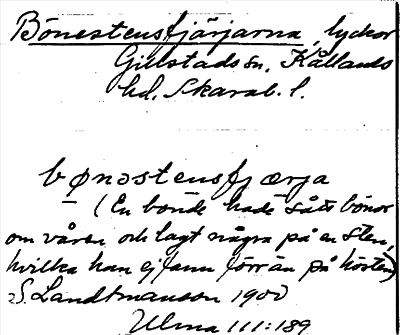 Bönestensfjärjarna, lyckor
Gillstads sn. Kållands
hd. Skarab. l.
bønəstensfjærja
(En bonde hade såts bönor
om våren och lagt några på en sten,
hvilka han ej fann förrän på hösten)
S. Landtmanson 1900
Ulma 111:189